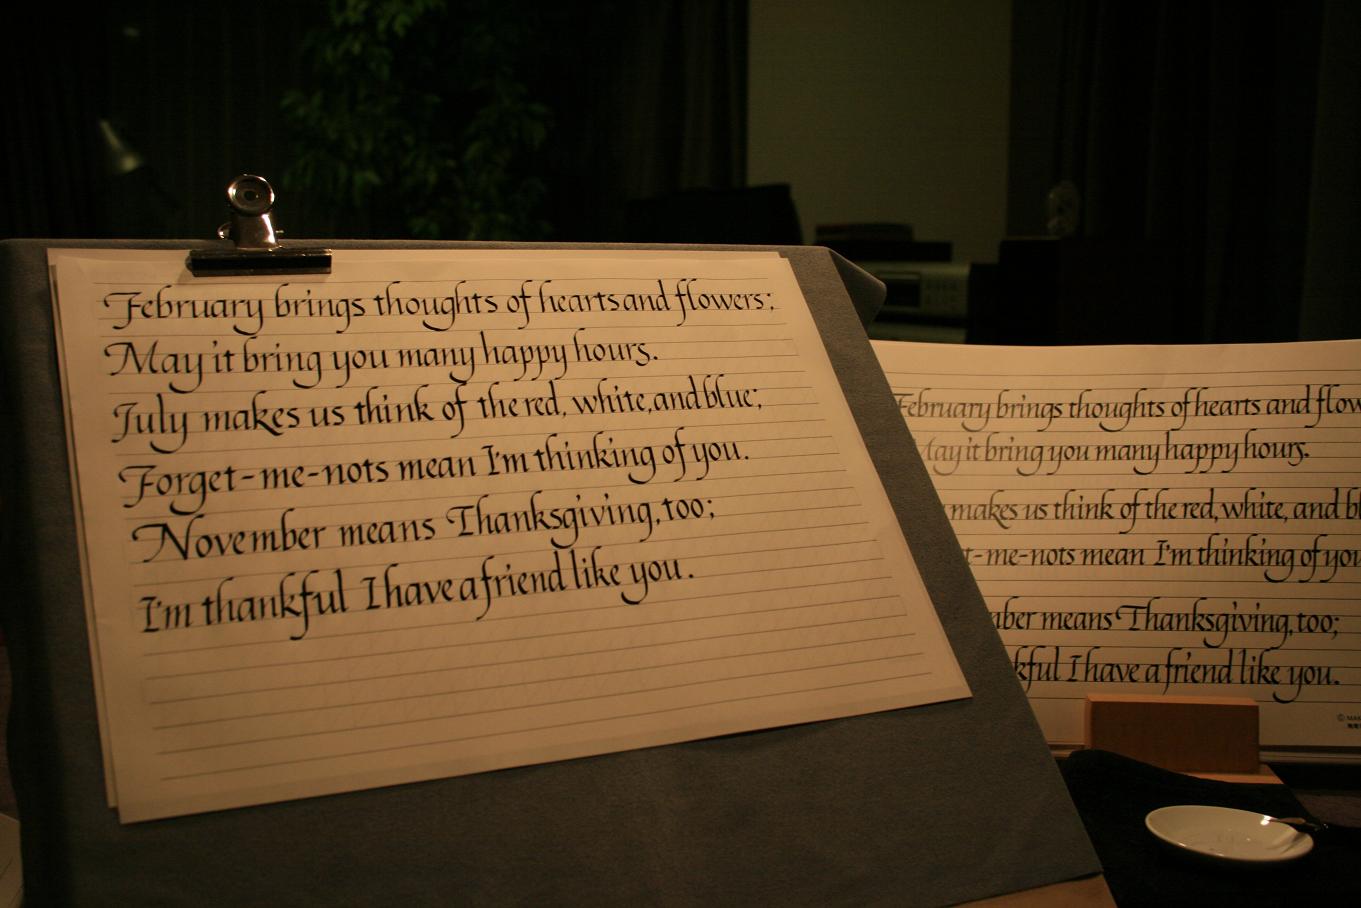 February brings thoughts of hearts and flowers;
May it bring you many happy hours.
July makes us think of the red, white, and blue;
Forget-me-nots mean I'm thinking of you.
November means Thanksgiving, too;
I'm thankful I have a friend like you.
February brings thoughts of hearts and flow
May it bring you many happy hours.
makes us think of the red, white, and bl
t-me-nots mean I'm thinking of you
mber means Thanksgiving, too;
kful I have a friend like you.